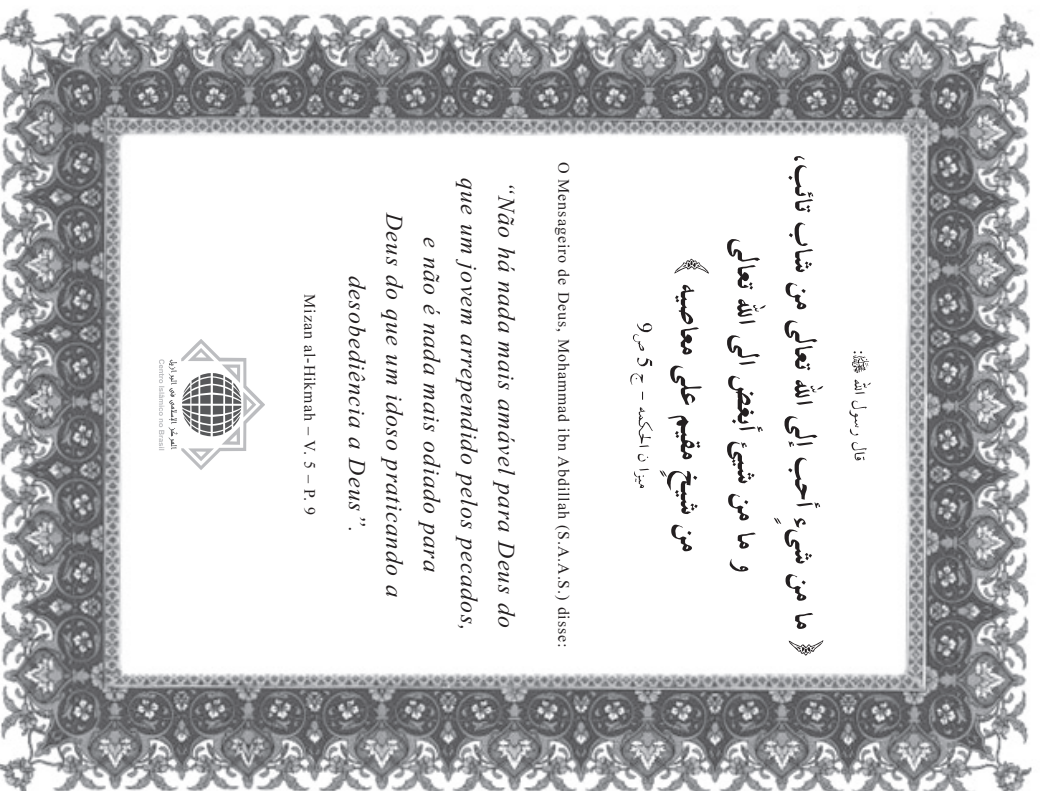 قال رسول الله ﷺ:
﴿ ما من شيءٍ أحب إلى الله تعالى من شاب تائب،
و ما من شيئ أبغض الى الله تعالى
من شيخٍ مقيم على معاصيه ﴾
ميزان الحكمه – ج 5 ص 9
O Mensageiro de Deus, Mohammad ibn Abdillah (S.A.A.S.) disse:
“Não há nada mais amável para Deus do
que um jovem arrependido pelos pecados,
e não é nada mais odiado para
Deus do que um idoso praticando a
desobediência a Deus”.
Mizan al-Hikmah – V. 5 – P. 9
المركز الإسلامي في البرازيل
Centro Islâmico no Brasil